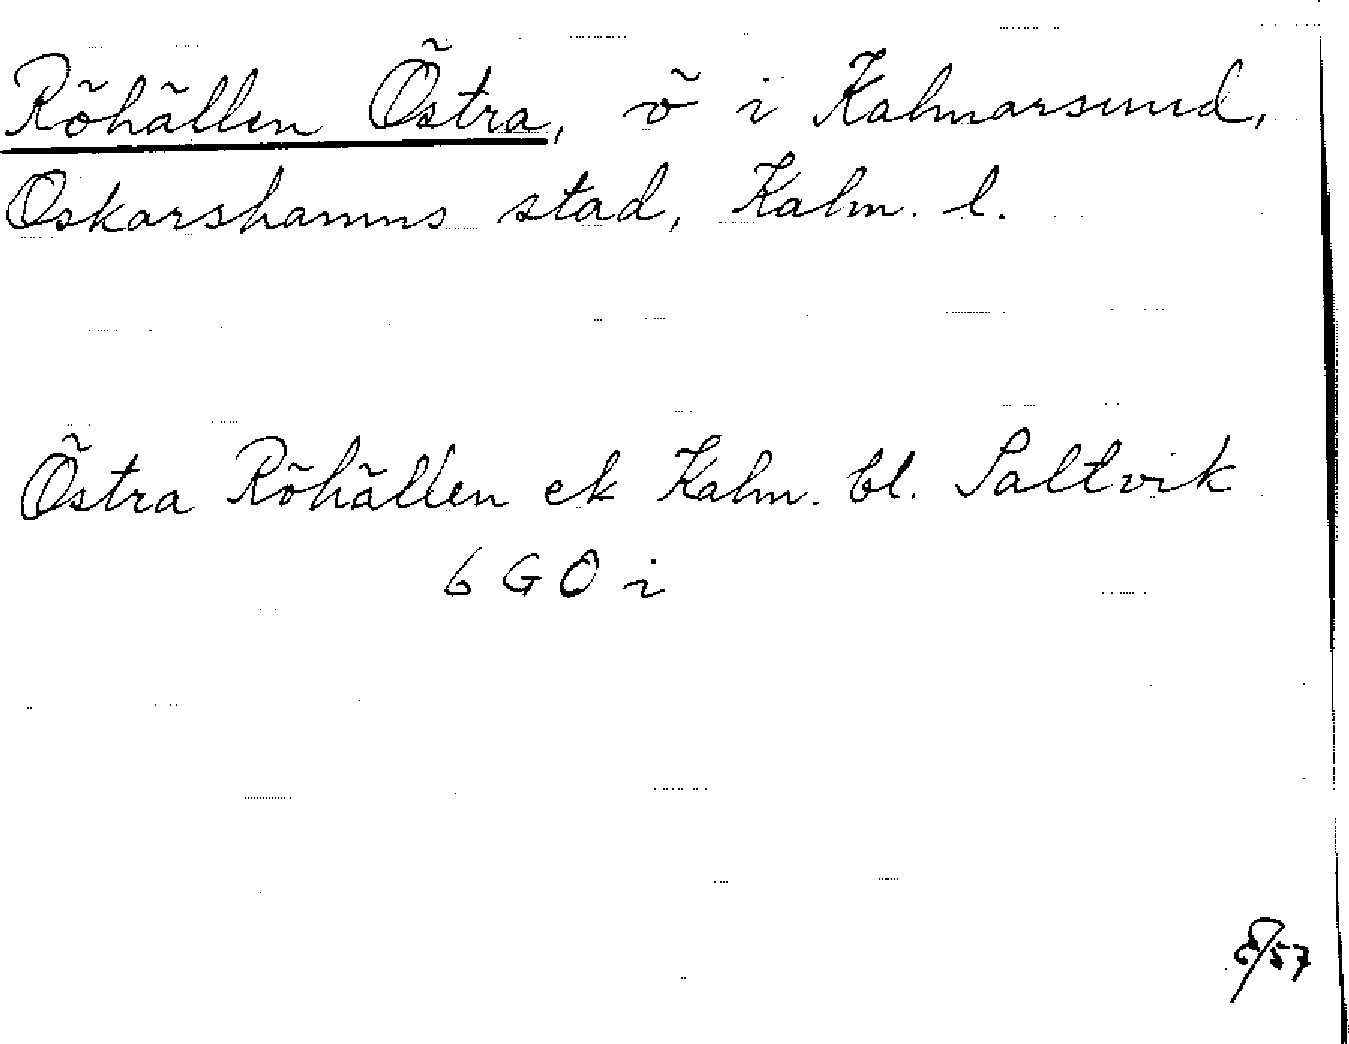 Röhällen Östra, ö i Kalmarsund,
Oskarshamns stad, Kalm. l.
Östra Röhällen ek Kalm. bl. Saltvik
6 G O i
8/57